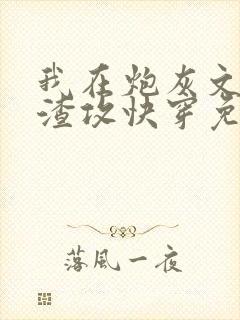 我在炮灰文
渣攻快穿免
落風一夜